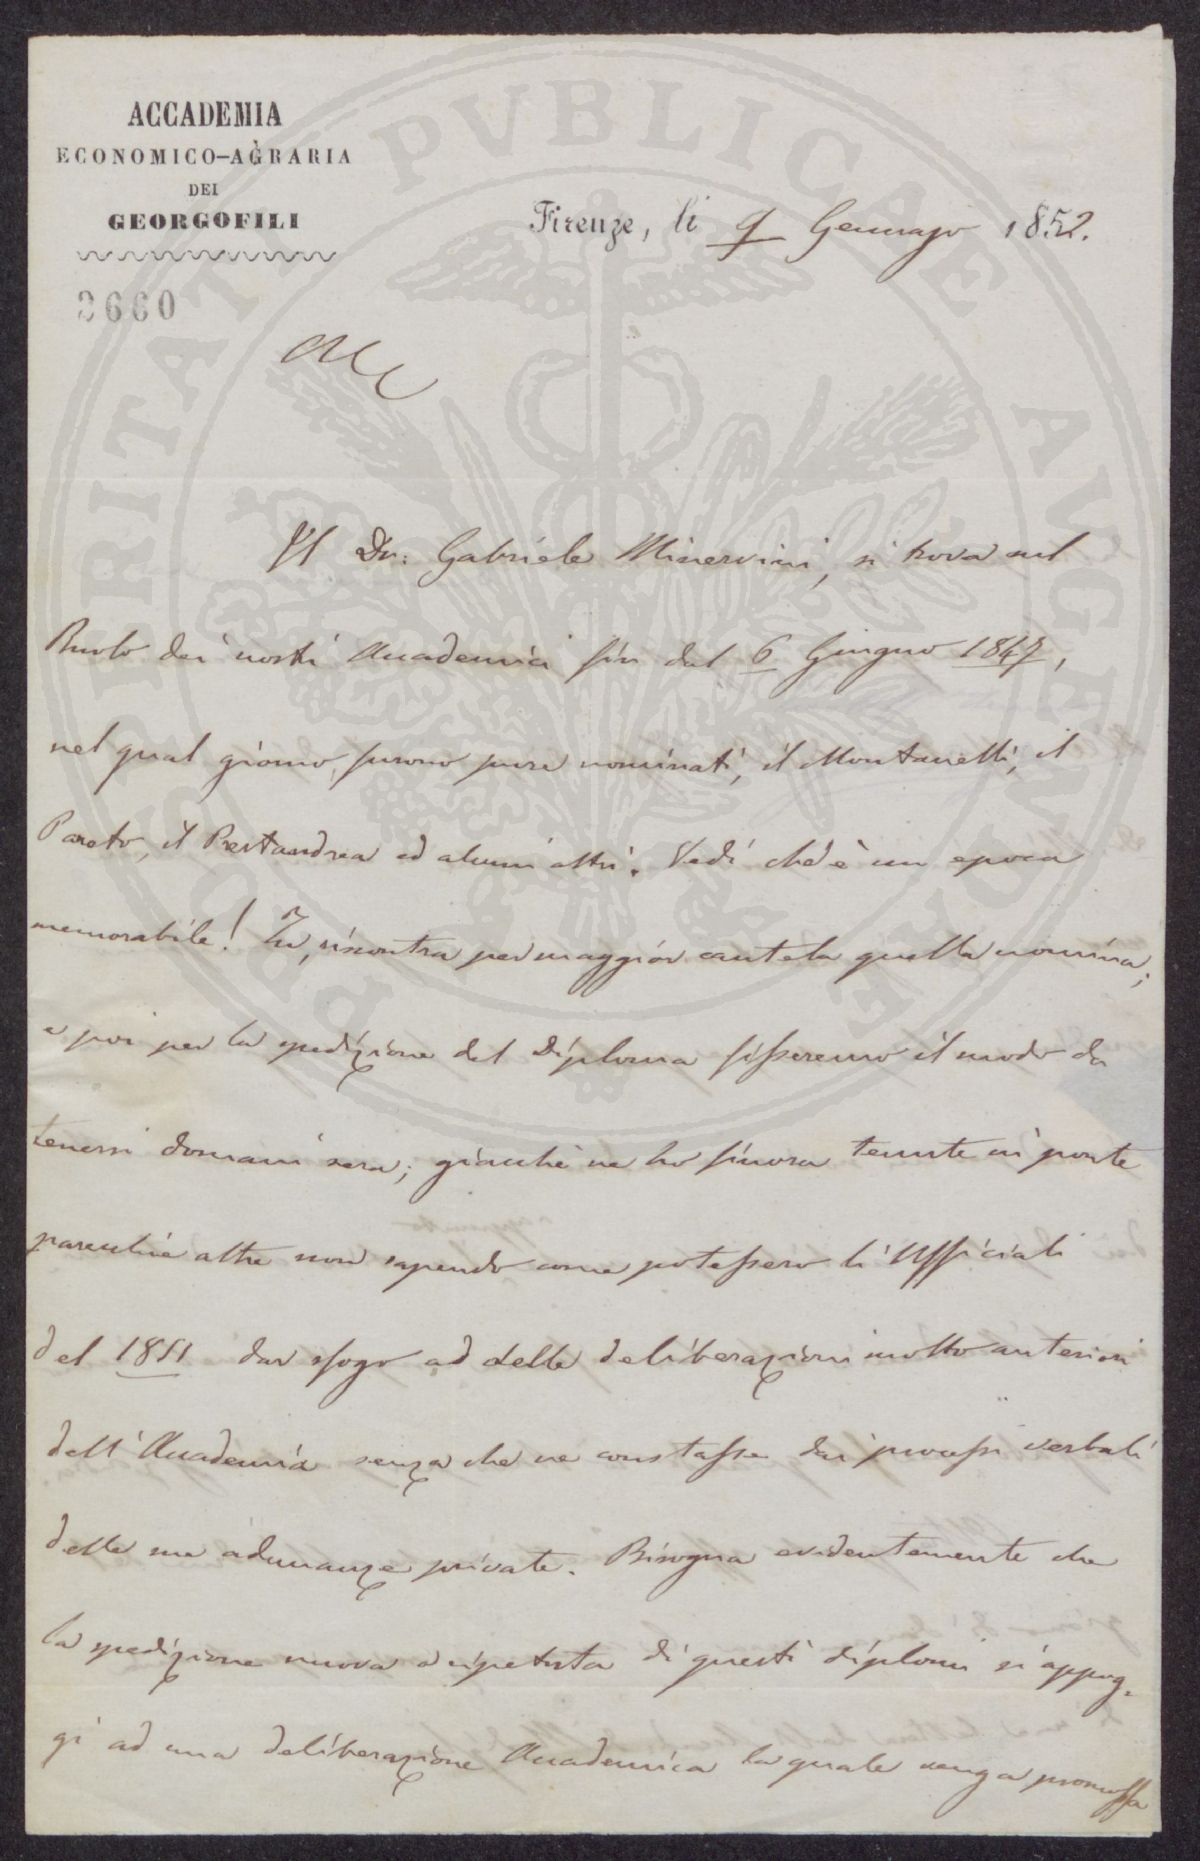 ACCADEMIA
ECONOMICO-AGRARIA
DEI
GEORGOFILI
Firenze, li 9 Gennajo 1852.
2660
PROSPERITATI PVBLICAE AVGENDAE
Il Dr: Gabriele Minervini, si trova nel
Ruolo dei nostri Accademici fin dal 6 Giugno 1847,
nel qual giorno, furono pure nominati, il Montanelli, il
Pareto, il Restandrea ed alcuni altri. Vedi che è un epoca
memorabile! Tu, riscontra per maggior cautela quella nomina;
e poi per la spedizione del Diploma fisseremo il modo da
tenersi domani sera; giacchè ne ho finora tenute in ponte
parecchie altre non sapendo come potessero li Ufficiali
del 1851 dar sfogo ad delle deliberazioni molto anteriori
dell'Accademia senza che ne constasse dai processi verbali
delle sue adunanze private. Bisogna evidentemente che
la spedizione nuova o ripetuta di questi diplomi si appog=
gi ad una deliberazione Accademica la quale venga promossa